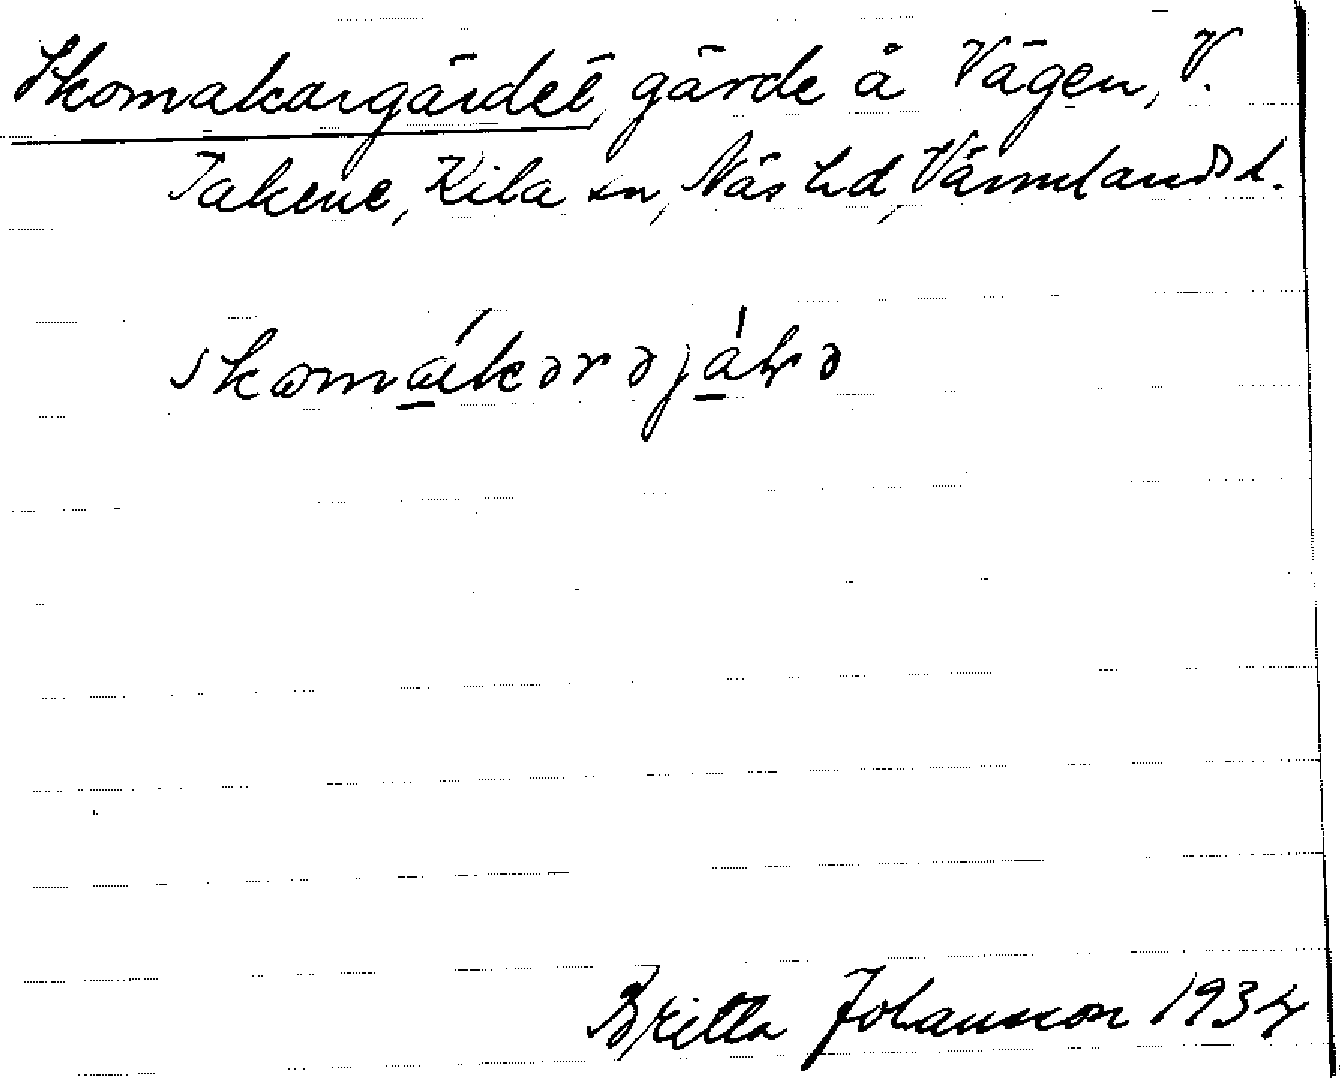 Skomakargärdet, gärde å Vägen, V.
Takene, Kila sn, Näs hd, Värmlands l.
skomákərəjáḷə
Britta Johansson 1934